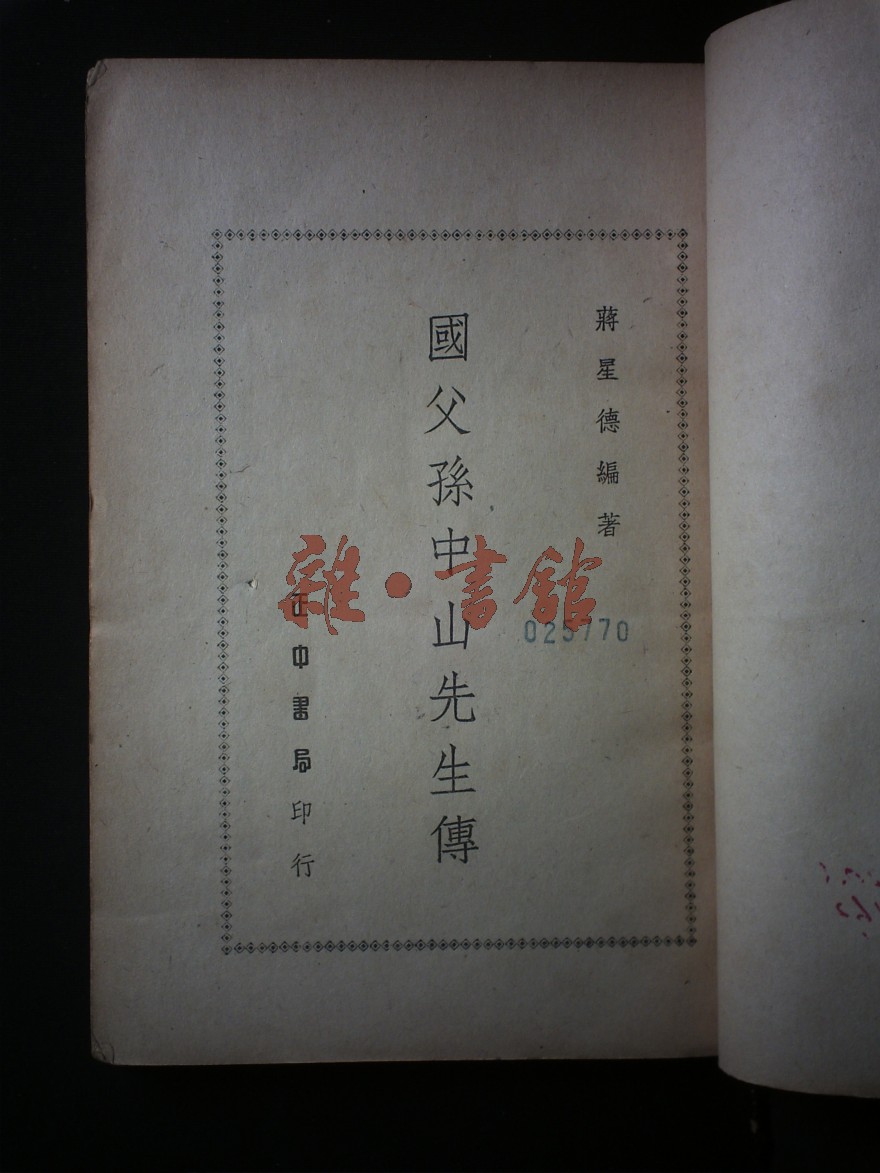 蔣星德編著
國父孫中山先生傳
正中書局印行
雜·書館
025770